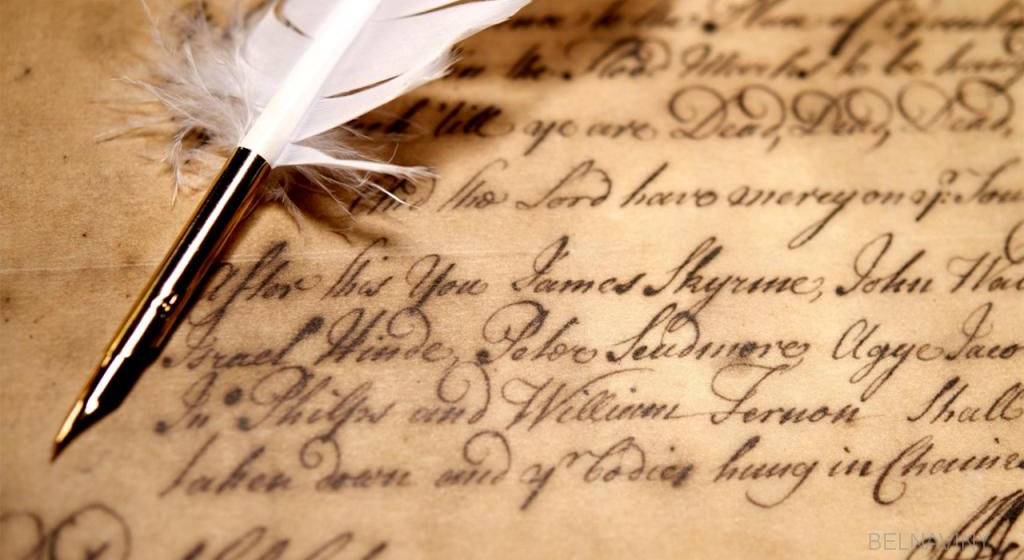 to the Place of
in the flood Marks to be hung
till ye are Dead, Dead, Dead,
And the Lord have mercy on yr. Sou
After this You James Skyrme, John
Israel Hinde, Peter Scudmore, Agge Jaco
Jn° Philips and William Fernon Shall
taken down and yr bodies hung in Chaines